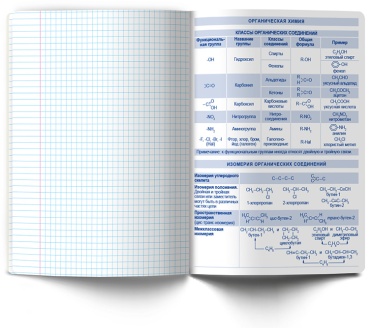 ОРГАНИЧЕСКАЯ ХИМИЯ
КЛАССЫ ОРГАНИЧЕСКИХ СОЕДИНЕНИЙ
Функциональ-
ная группа
Название
группы
Классы
соединений
Общая
формула
Пример
-OH
Гидроксил
Спирты
Фенолы
R-OH
C₂H₅OH
этиловый спирт
-OH
фенол
>C=O
Карбонил
Альдегиды
Кетоны
CH₃CHO
уксусный альдегид
CH₃COCH₃
ацетон
Карбоксил
Карбоновые
кислоты
CH₃COOH
уксусная кислота
-NO₂
Нитрогруппа
Нитро
соединения
R-NO₂
CH₃NO₂
нитрометан
-NH₂
Аминогруппа
Амины
R-NH₂
-NH₂
анилин
-F, -Cl, -Br, -I
(Hal)
Фтор, хлор, бром,
йод (галоген)
Галогено-
производные
R-Hal
CH₃Cl
хлористый метил
Примечание: к функциональным группам иногда относят двойную и тройную связи.
ИЗОМЕРИЯ ОРГАНИЧЕСКИХ СОЕДИНЕНИЙ
Изомерия углеродного
скелета
C-C-C-C
Изомерия положения.
Двойная и тройная
связи или заместитель
могут быть в различных
частях цепи
1-хлорпропан
2-хлорпропан
бутин-1
бутин-2
Пространственная
изомерия
(цис-транс-изомерия)
цис-бутен-2
транс-бутен-2
Межклассовая
изомерия
бутен-1
циклобутан
C₄H₈
этиловый
спирт
диметиловый
эфир
C₂H₆O
бутин-1
бутадиен-1,3
C₄H₆